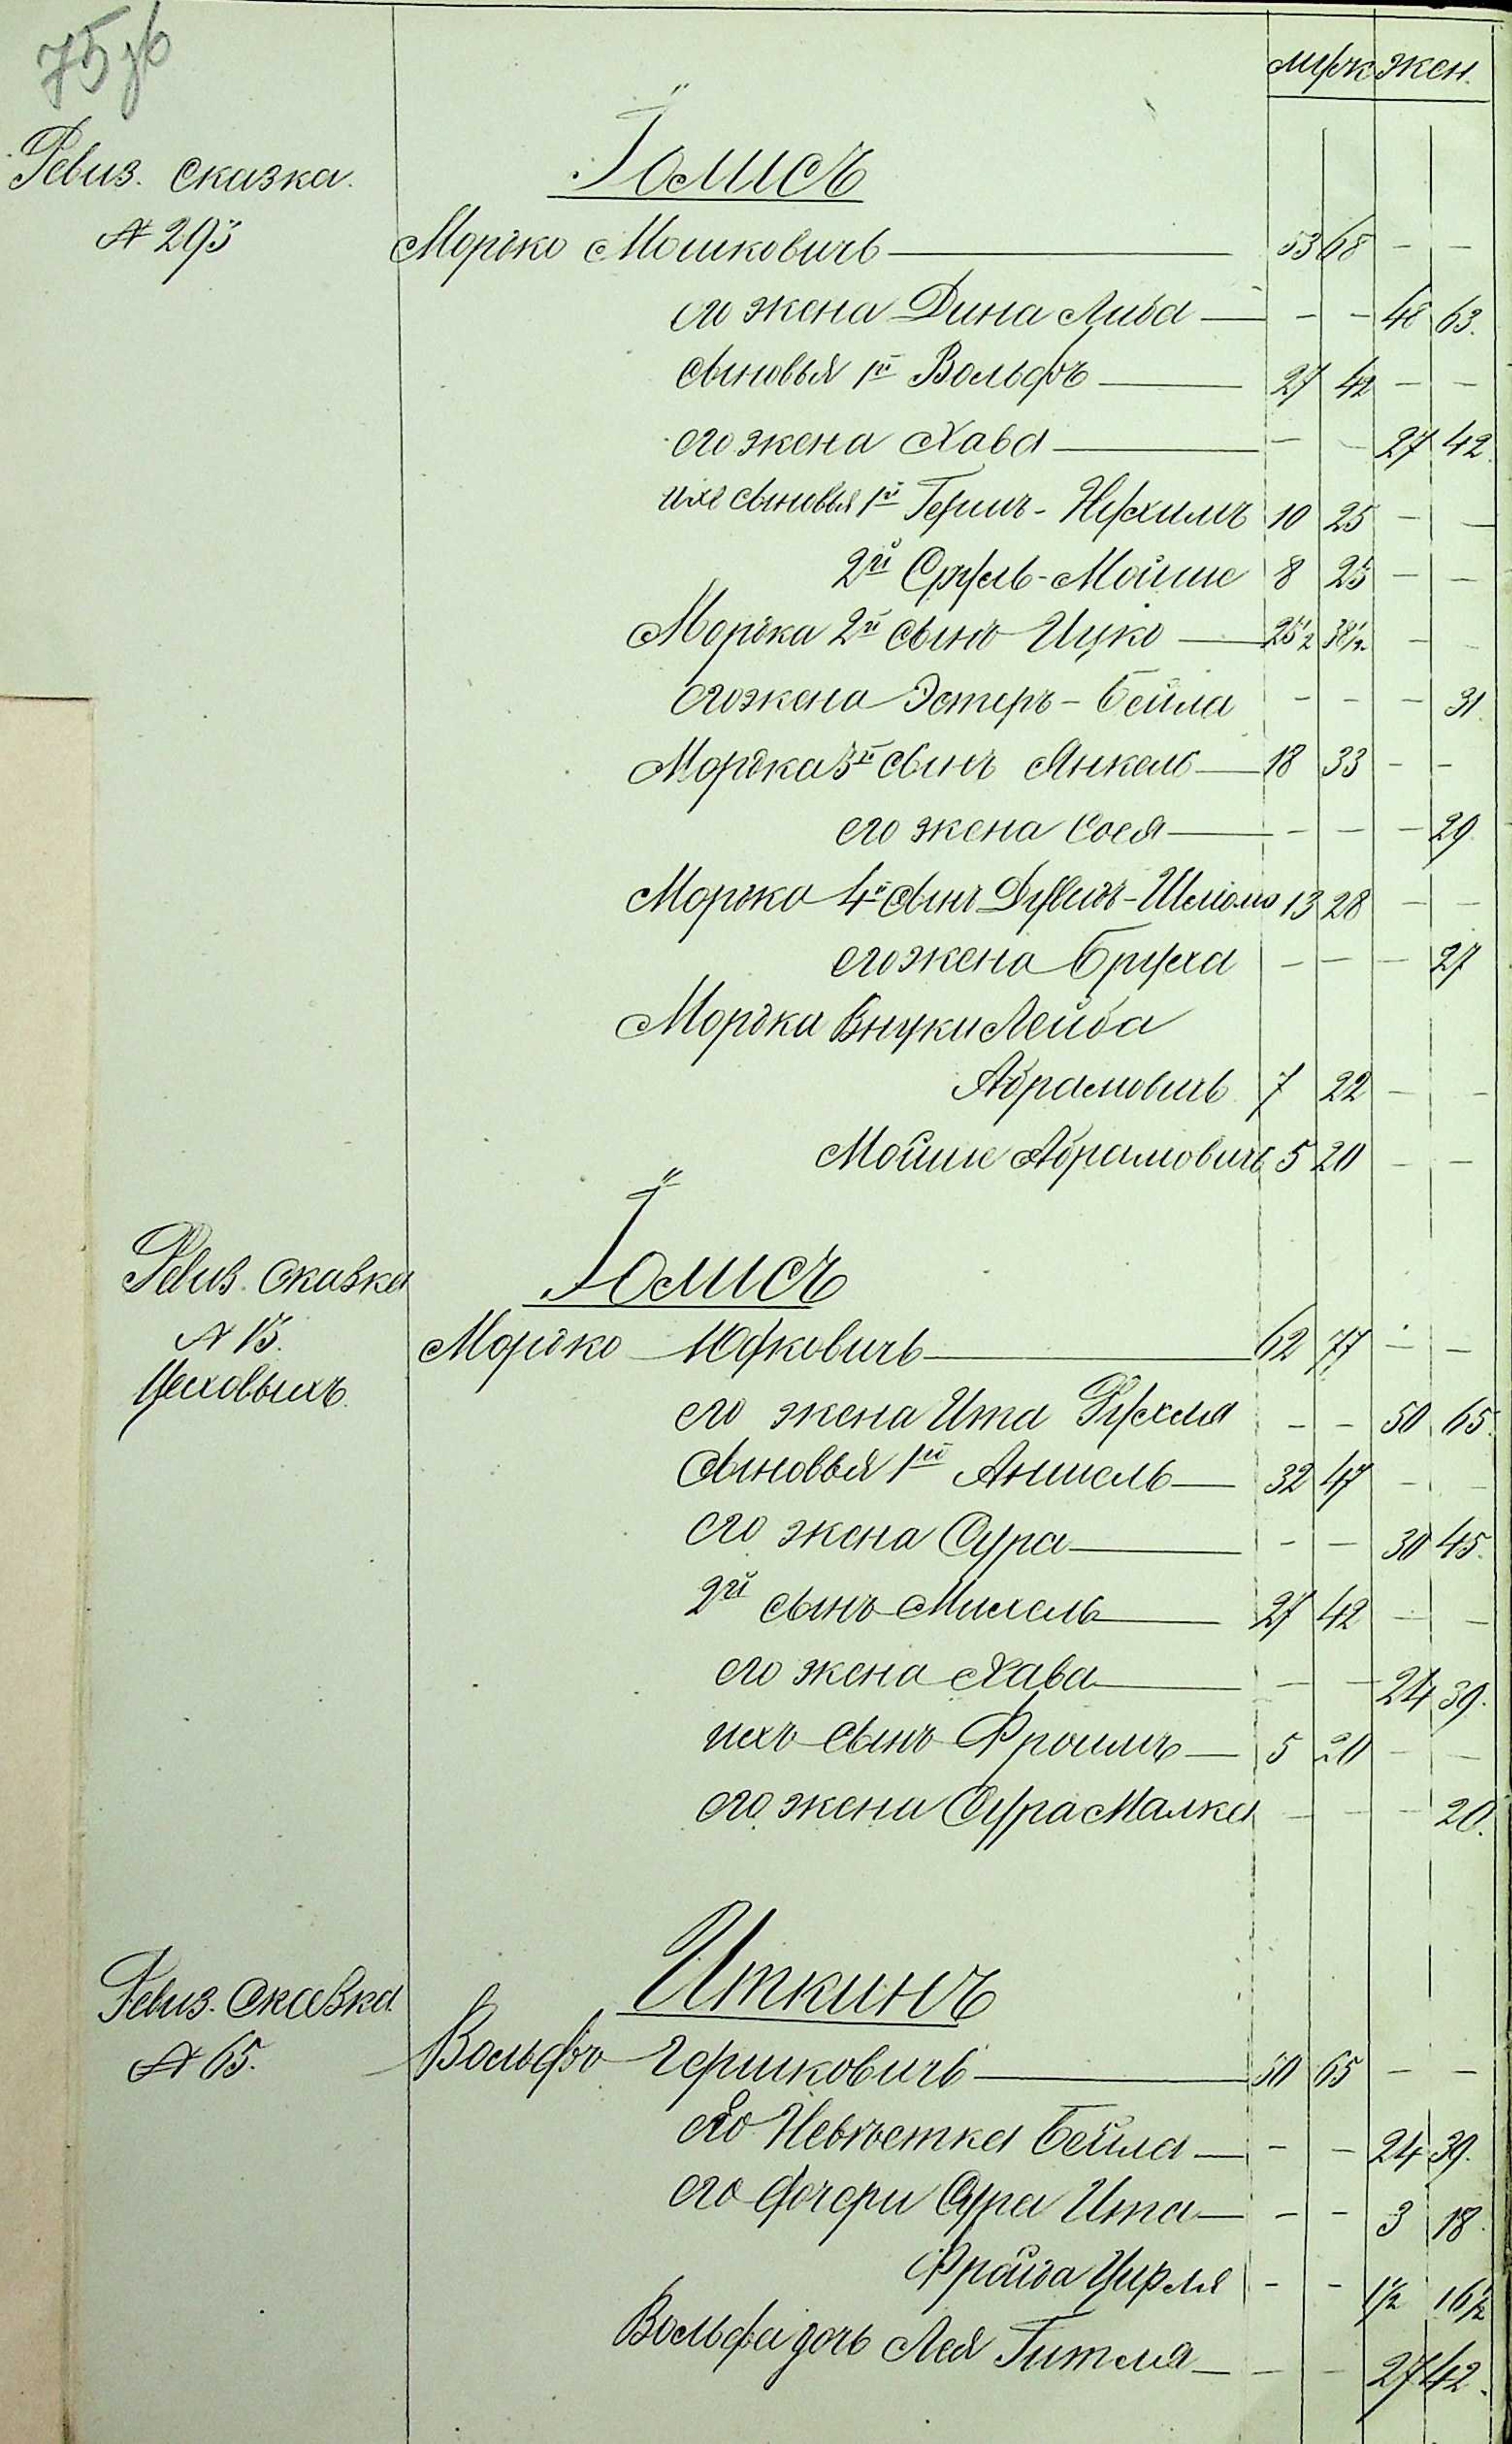 75 об
муж. жен.
Ревиз. сказка. Іомисъ
№ 293 Мордко Мошковичъ 53 68 — —
его жена Дина Либа — — 48 63.
сыновья 1й Вольфъ 27 42 — —
его жена Хава — — 27 42.
ихъ сыновья 1й Гершъ-Нухимъ 10 25 — —
2й Сруль-Мойше 8 23 — —
Мордка 2й сынъ Ицко 23½ 38½ — —
его жена Эстеръ-Бейла — — — 31.
Мордка 3й сынъ Янкель 18 33 — —
его жена Сося — — — 29.
Мордка 4й сынъ Дувидъ-Шліома 13 28 — —
его жена Бруха — — — 27
Мордка Внуки Лейба
Абрамовичъ 7 22 — —
Мойше Абрамовичъ 5 20 — —
Ревиз. сказка Іомисъ
№ 15. Мордко Юдковичъ 62 77 — —
Цеховыхъ.
его жена Ита Рухля — — 50 65.
сыновья 1й Аншель 32 47 — —
его жена Сура — — 30 45.
2й сынъ Михель 27 42 — —
его жена Хава — — 24 39.
ихъ сынъ Фроимъ 5 20 — —
его жена Сура Малка — — — 20.
Ревиз. сказка Иткинъ
№ 65. Вольфъ Гершковичъ 50 65 — —
его Невѣстка Бейла — — 24 39.
его дочери Сура Ита — — 3 18.
Фрейда Цирля — — 1½ 16½
Вольфа дочь Лея Гитля — — 27 42.